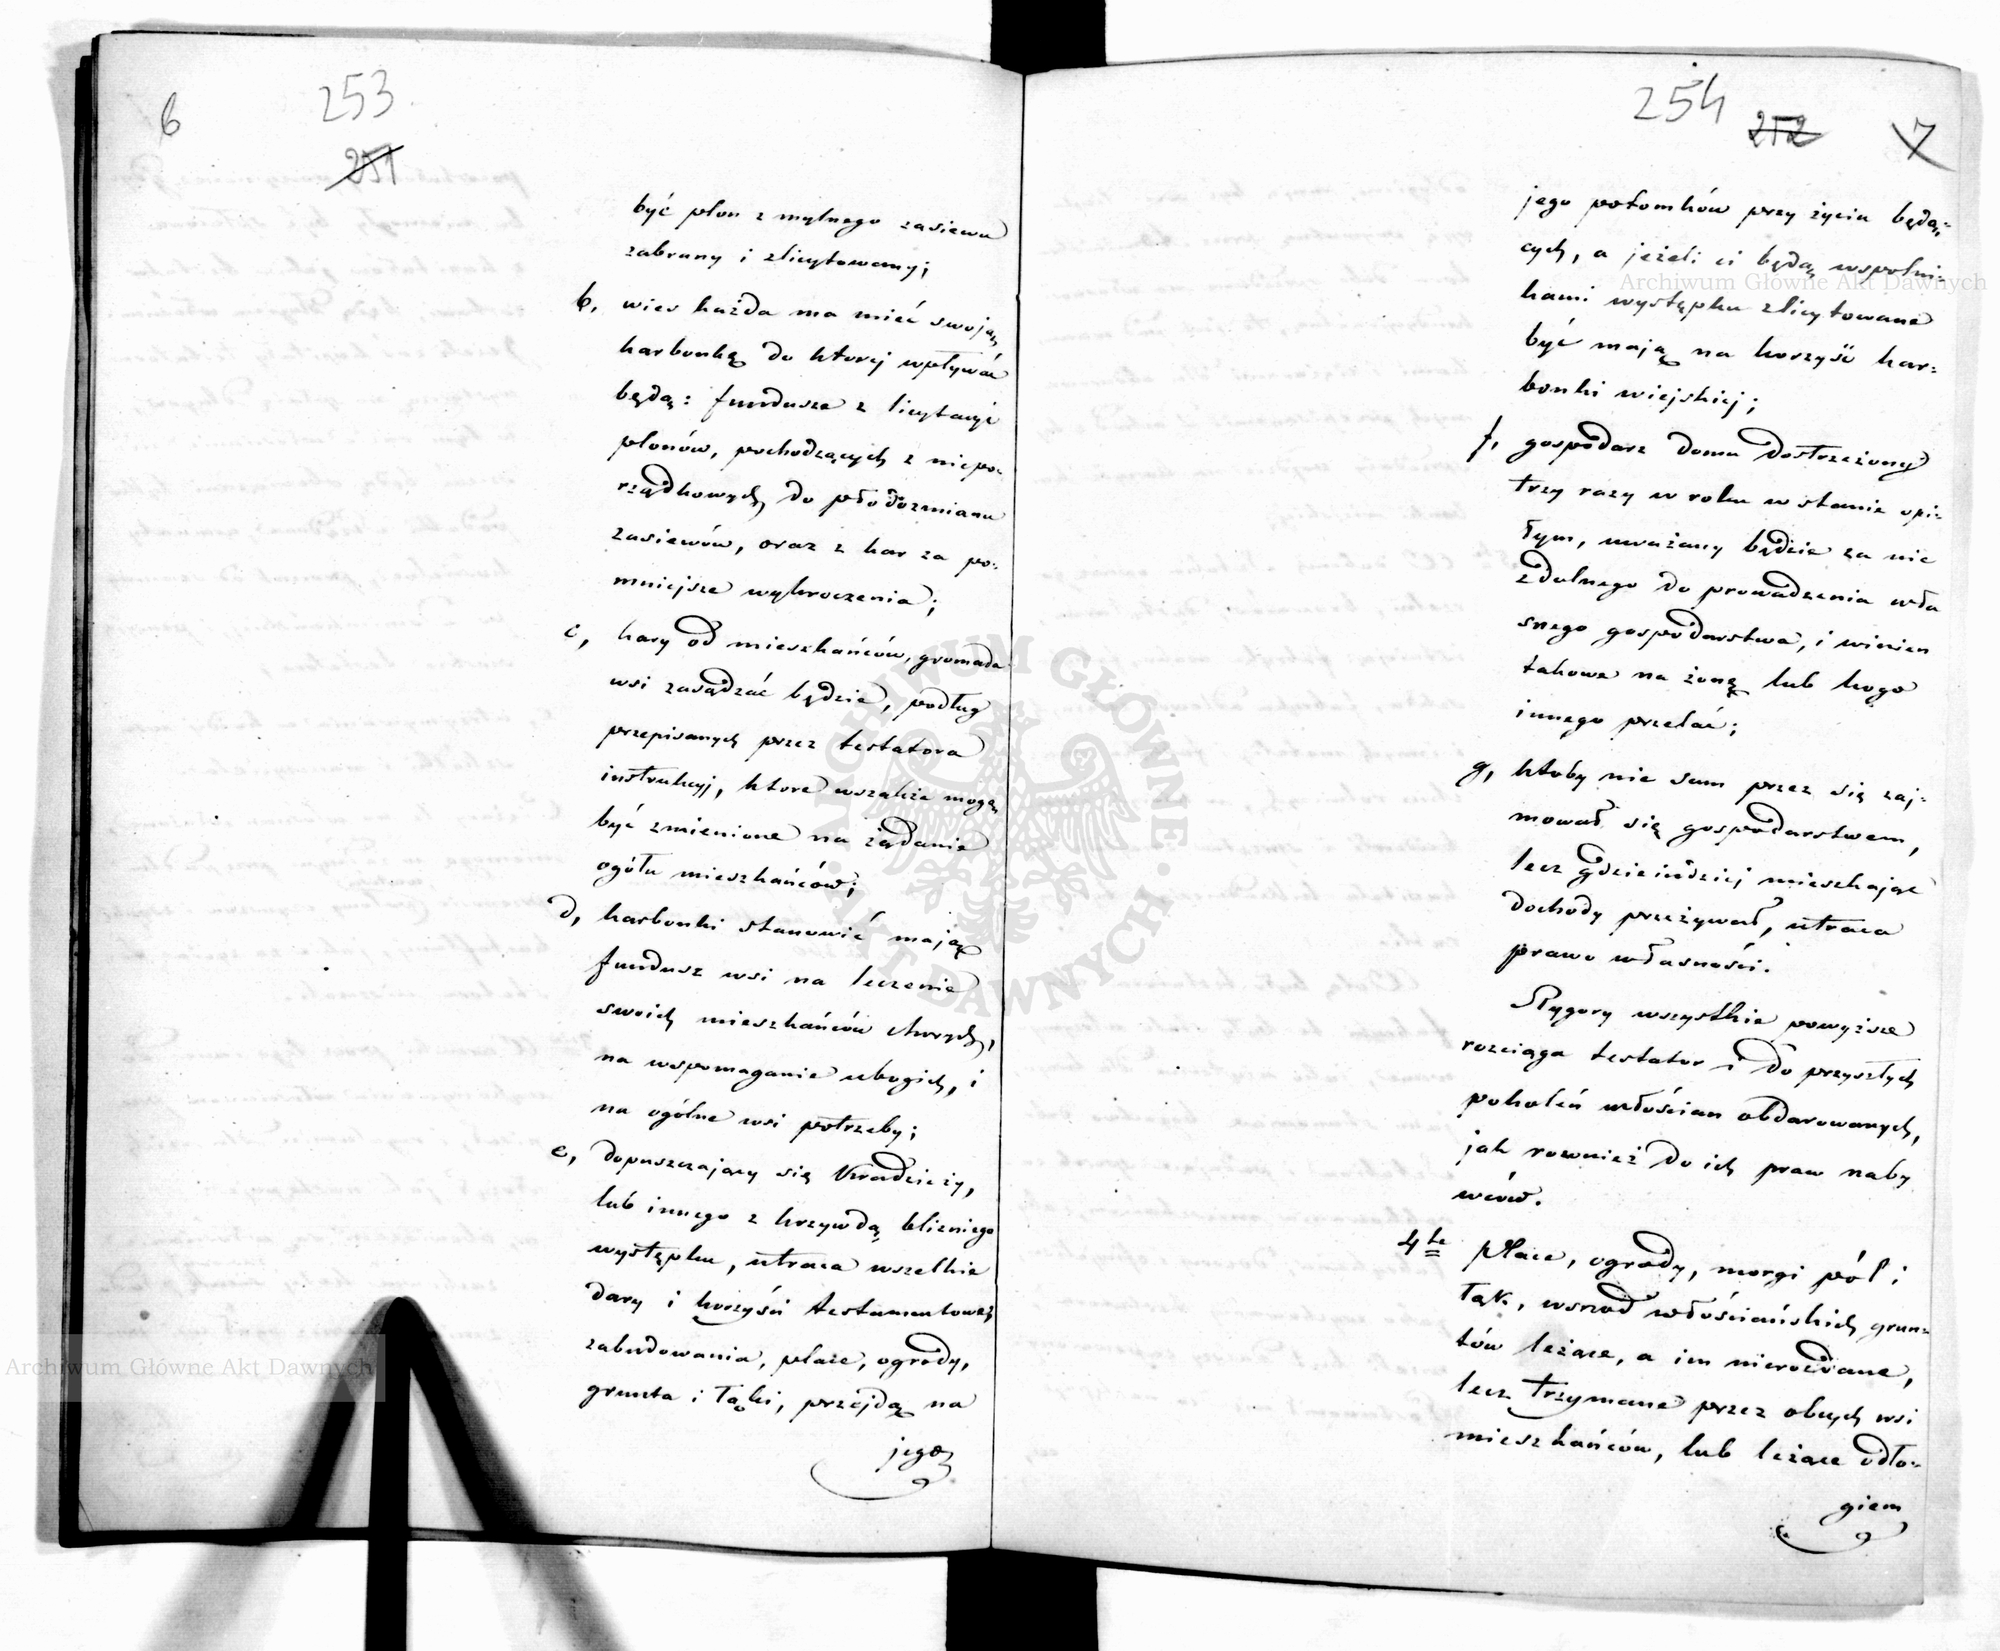 6
253
251
być plon z mylnego zasiewu
zabrany i zlicytowany;
b, wies każda ma mieć swoją
karbonkę do ktorej wpływać
będą: fundusze z licytacyi
plonów, pochodzących z niepo-
rządkowych do płodozmianu
zasiewów, oraz z kar za po-
mniejsze wykroczenia;
c, kary od mieszkańców, gromada
wsi zasądzać będzie, podług
przepisanych przez testatora
instrukcyj, ktore wszakże mogą
być zmienione na żądanie
ogółu mieszkańców;
d, karbonki stanowić mają
fundusz wsi na leczenie
swoich mieszkańców chorych,
na wspomaganie ubogich, i
na ogólne wsi potrzeby;
e, dopuszczający się kradzieży,
lub innego z krzywdą blizniego
występku, utraca wszelkie
dary i korzyści testamentowe,
zabudowania, place, ogrody,
grunta i łąki, przejdą na
jego
254
252
7
jego potomków przy życiu będą-
cych, a jeżeli ci będą wspolni-
kami występku zlicytowane
być mają na korzyść kar-
bonki wiejskiej;
f, gospodarz domu dostrzeżony
trzy razy w roku w stanie opi-
łym, uważany będzie za nie
zdolnego do prowadzenia wła
snego gospodarstwa, i winien
takowe na żonę lub kogo
innego przelać;
g, ktoby nie sam przez się zaj-
mował się gospodarstwem,
lecz gdzieindziej mieszkając
dochody przeżywał, utraca
prawo własności.
Rygory wszystkie powyższe
rozciąga testator i do przyszłych
pokoleń włościan obdarowanych,
jak rownież do ich praw naby
wców.
4te Place, ogrody, morgi pól i
łąk, wsrzod włościańskich grun-
tów leżące, a im nierozdane,
lecz trzymane przez obcych wsi
mieszkańców, lub leżące odło-
giem
Archiwum Główne Akt Dawnych
Archiwum Główne Akt Dawnych
ARCHIWUM GŁÓWNE
AKT DAWNYCH